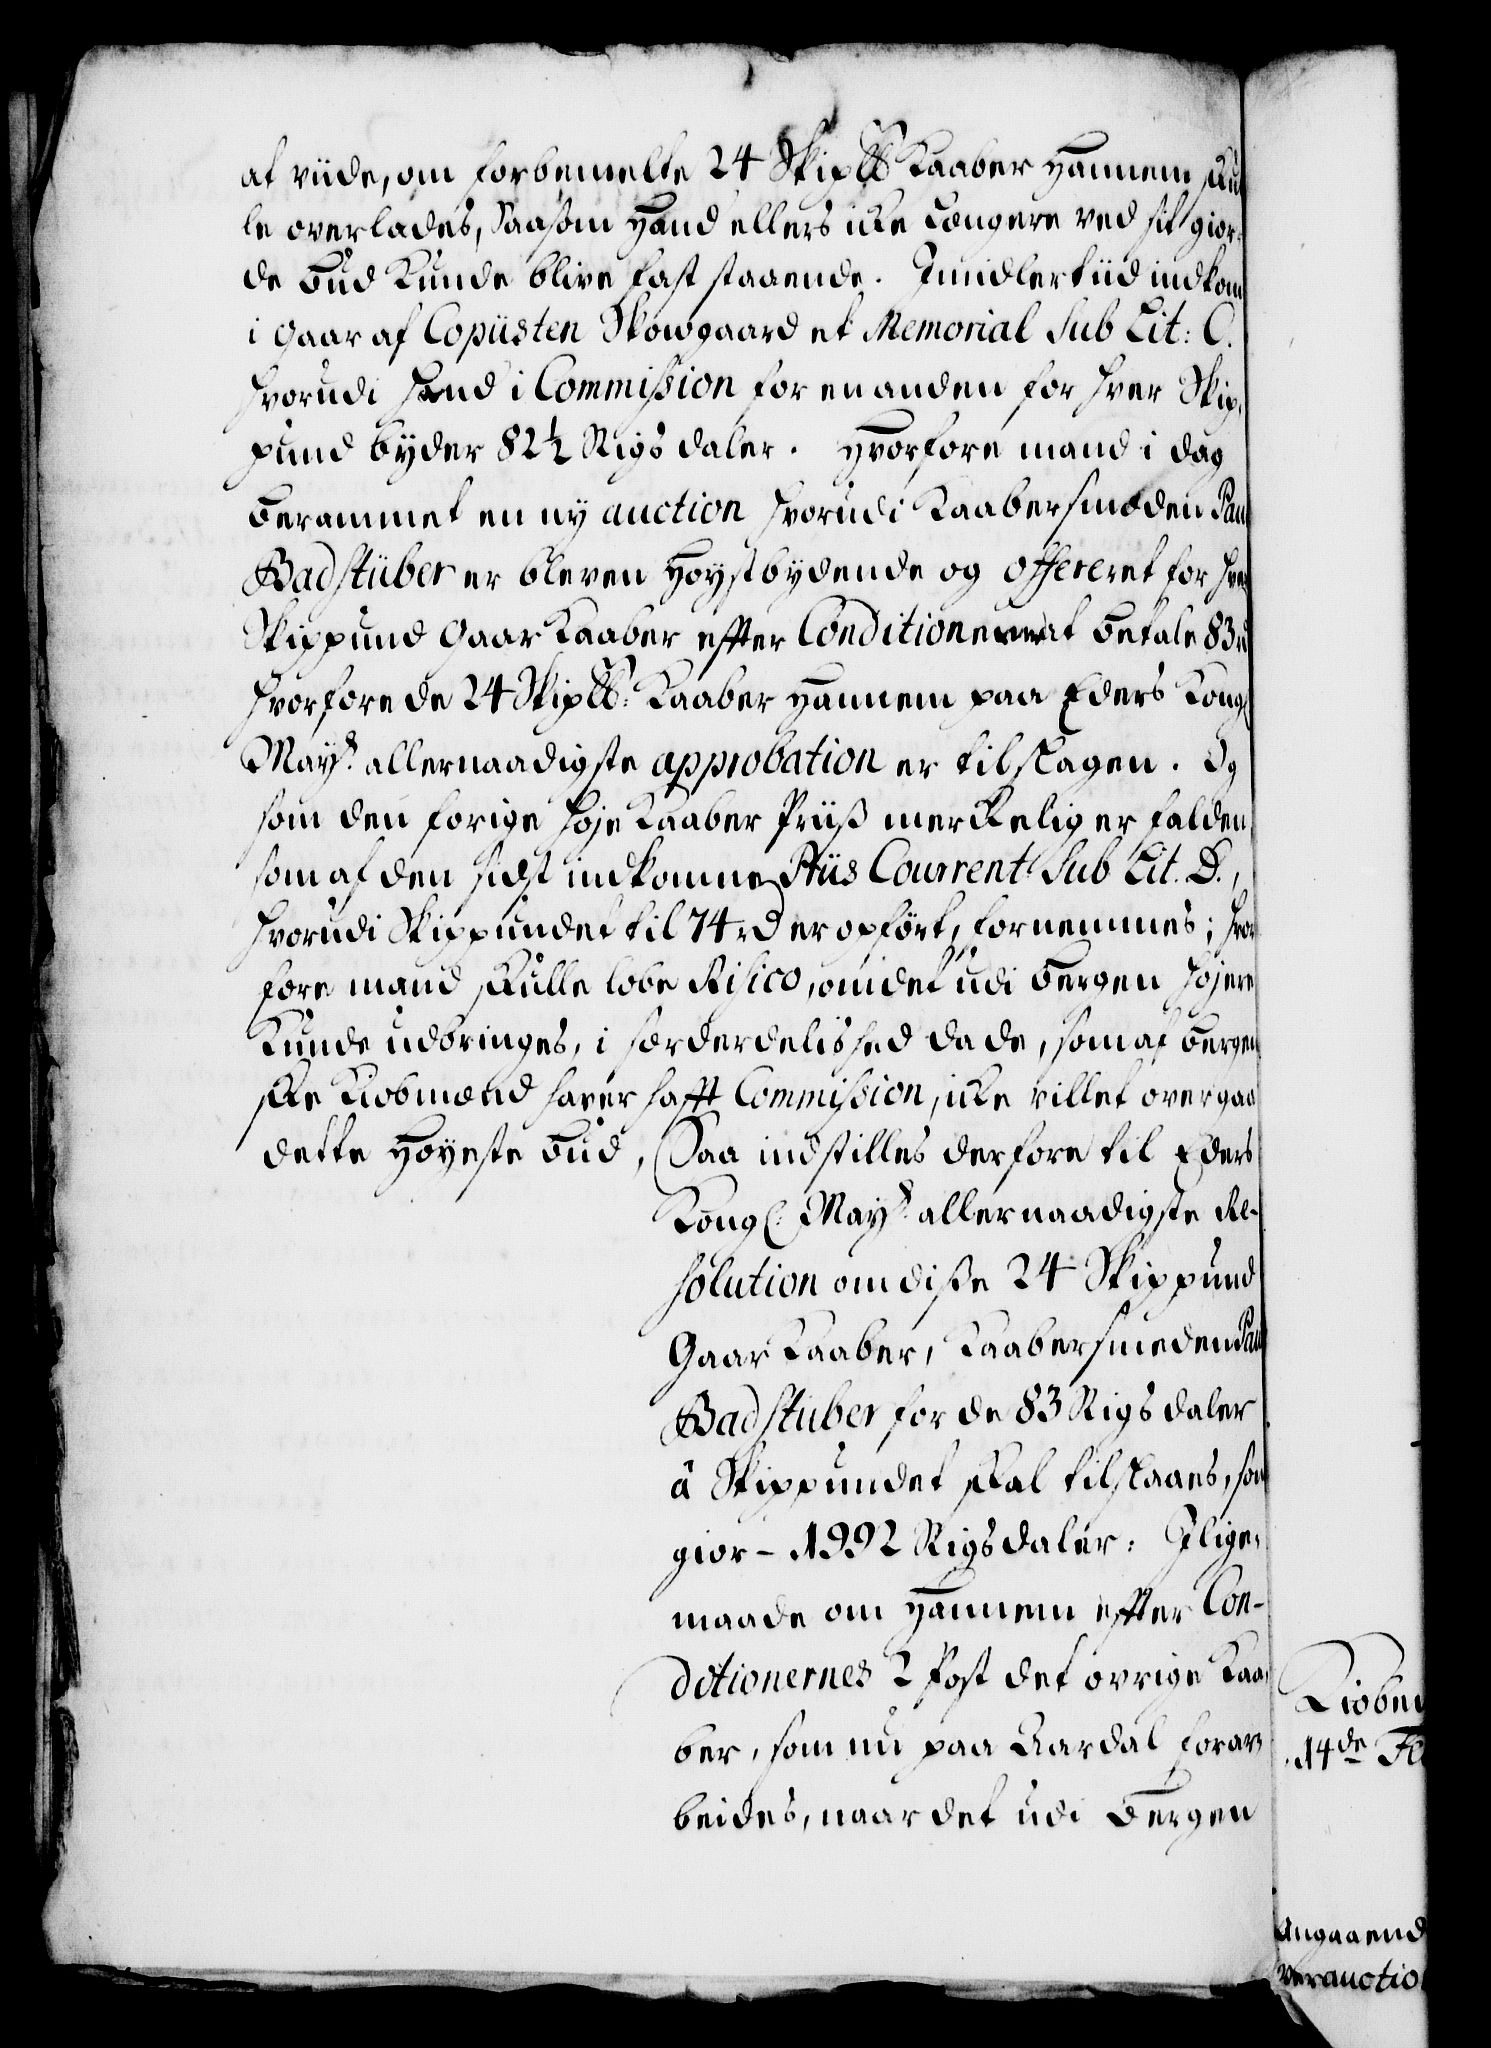 at viide, om forbemelte 24 Skip℔ Kaaber Hannem skul
le overlades, Saasom Hand ellers icke længere ved sit gior-
de Bud Kunde blive fast staaende. Imidlertiid indkom
i Gaar af Copiisten Skowgaard et Memorial sub Lit: C.
hvorudi Hand i Commission for en anden for hver Skip-
pund byder 82½ Rigs daler. Hvorfore mand i dag
berammet en ny auction hvorudi Kaabersmeden Paul
Badstüber er bleven Høystbydende og offereret for hver
Skippund Gaar Kaaber effter Conditionerne at betale 83 rd
hvorfore de 24 Skip℔: Kaaber Hannem paa Eders Kongl
Mayt: allernaadigste approbation er tilslagen. Og
som den forige høje Kaaber Priiß merckelig er falden,
som af den sidst indkomne Priis Courrent sub Lit. D.,
hvorudi Skippundet til 74 rd er opført, fornemmes; hvor
fore mand skulle løbe Risico, om det udi Bergen højere
Kunde udbringes, i særderdelished da de, som af Bergen
ske Kiøbmænd haver hafft Commission, icke villet overgaa
dette Høyeste Bud, Saa indstilles derfore til Eders
Kongl: Mayt: allernaadigste Re-
solution om diße 24 Skippund
Gaar Kaaber, Kaabersmeden Paul
Badstüber for de 83 Rigs daler
á Skippundet skal tilslaaes, som
giør - 1992 Rigsdaler: Ilige-
maade om Hannem effter Con-
ditionernes 2 Post det øvrige Kaa-
ber, som nu paa Aardal forar-
beides, naar det udi Bergen
Kiøben
14de Fe
Angaaend
ver auctio